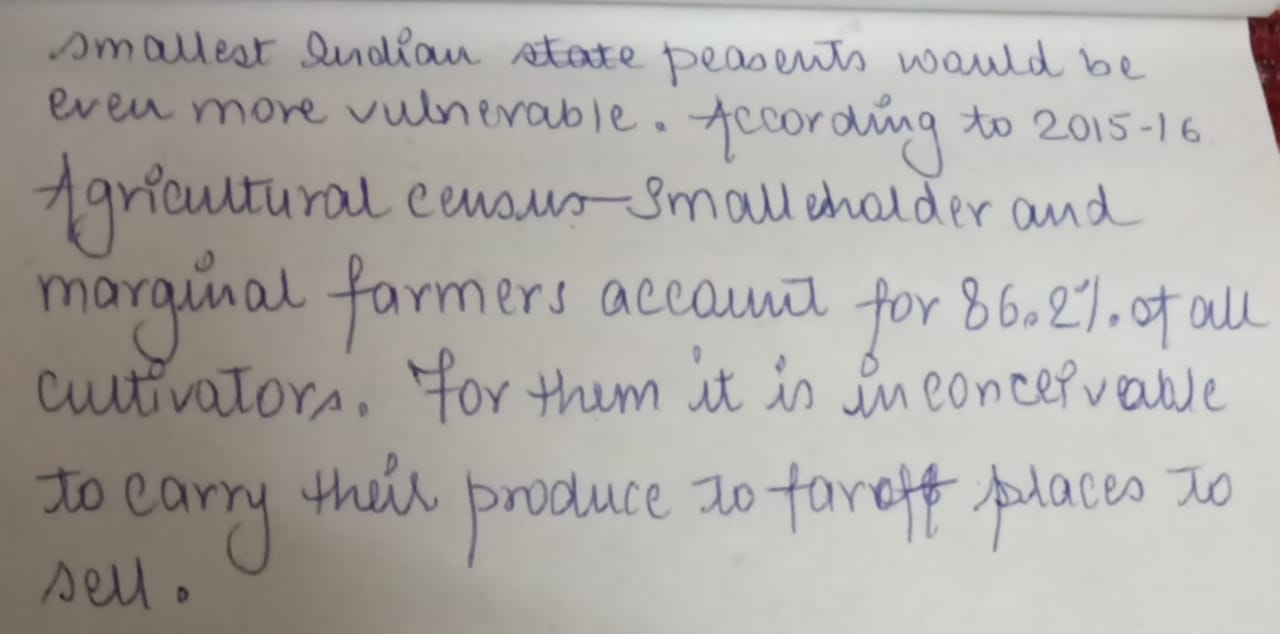 smallest Indian state peasents would be
even more vulnerable. According to 2015-16
Agricultural census-Smalleholder and
marginal farmers account for 86.2% of all
cultivators. For them it is inconceivable
to carry their produce to faroff places to
sell.